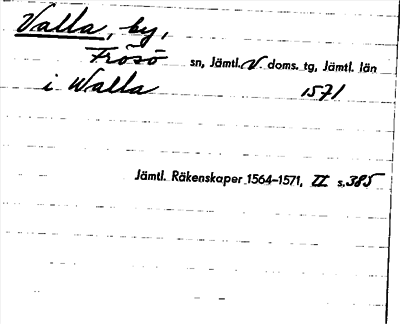 Valla, by,
Frösö sn, Jämtl. V. doms. tg, Jämtl. län
i Walla 1571
Jämtl. Räkenskaper 1564-1571, II s. 385